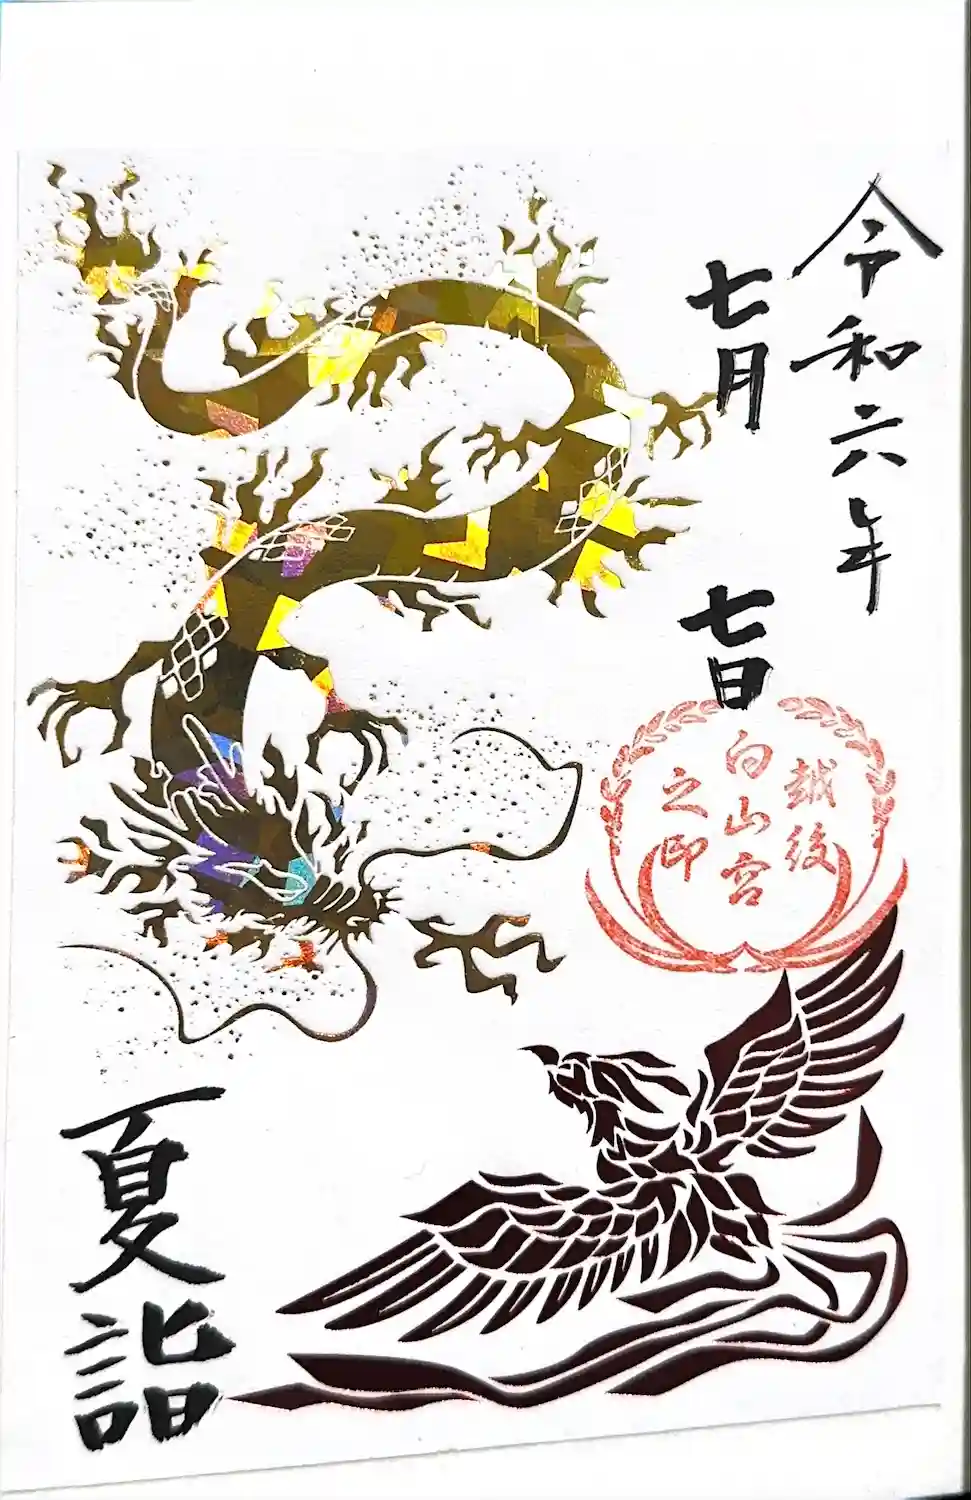 令和六年
七月七日
越後
白山宮
之印
夏詣